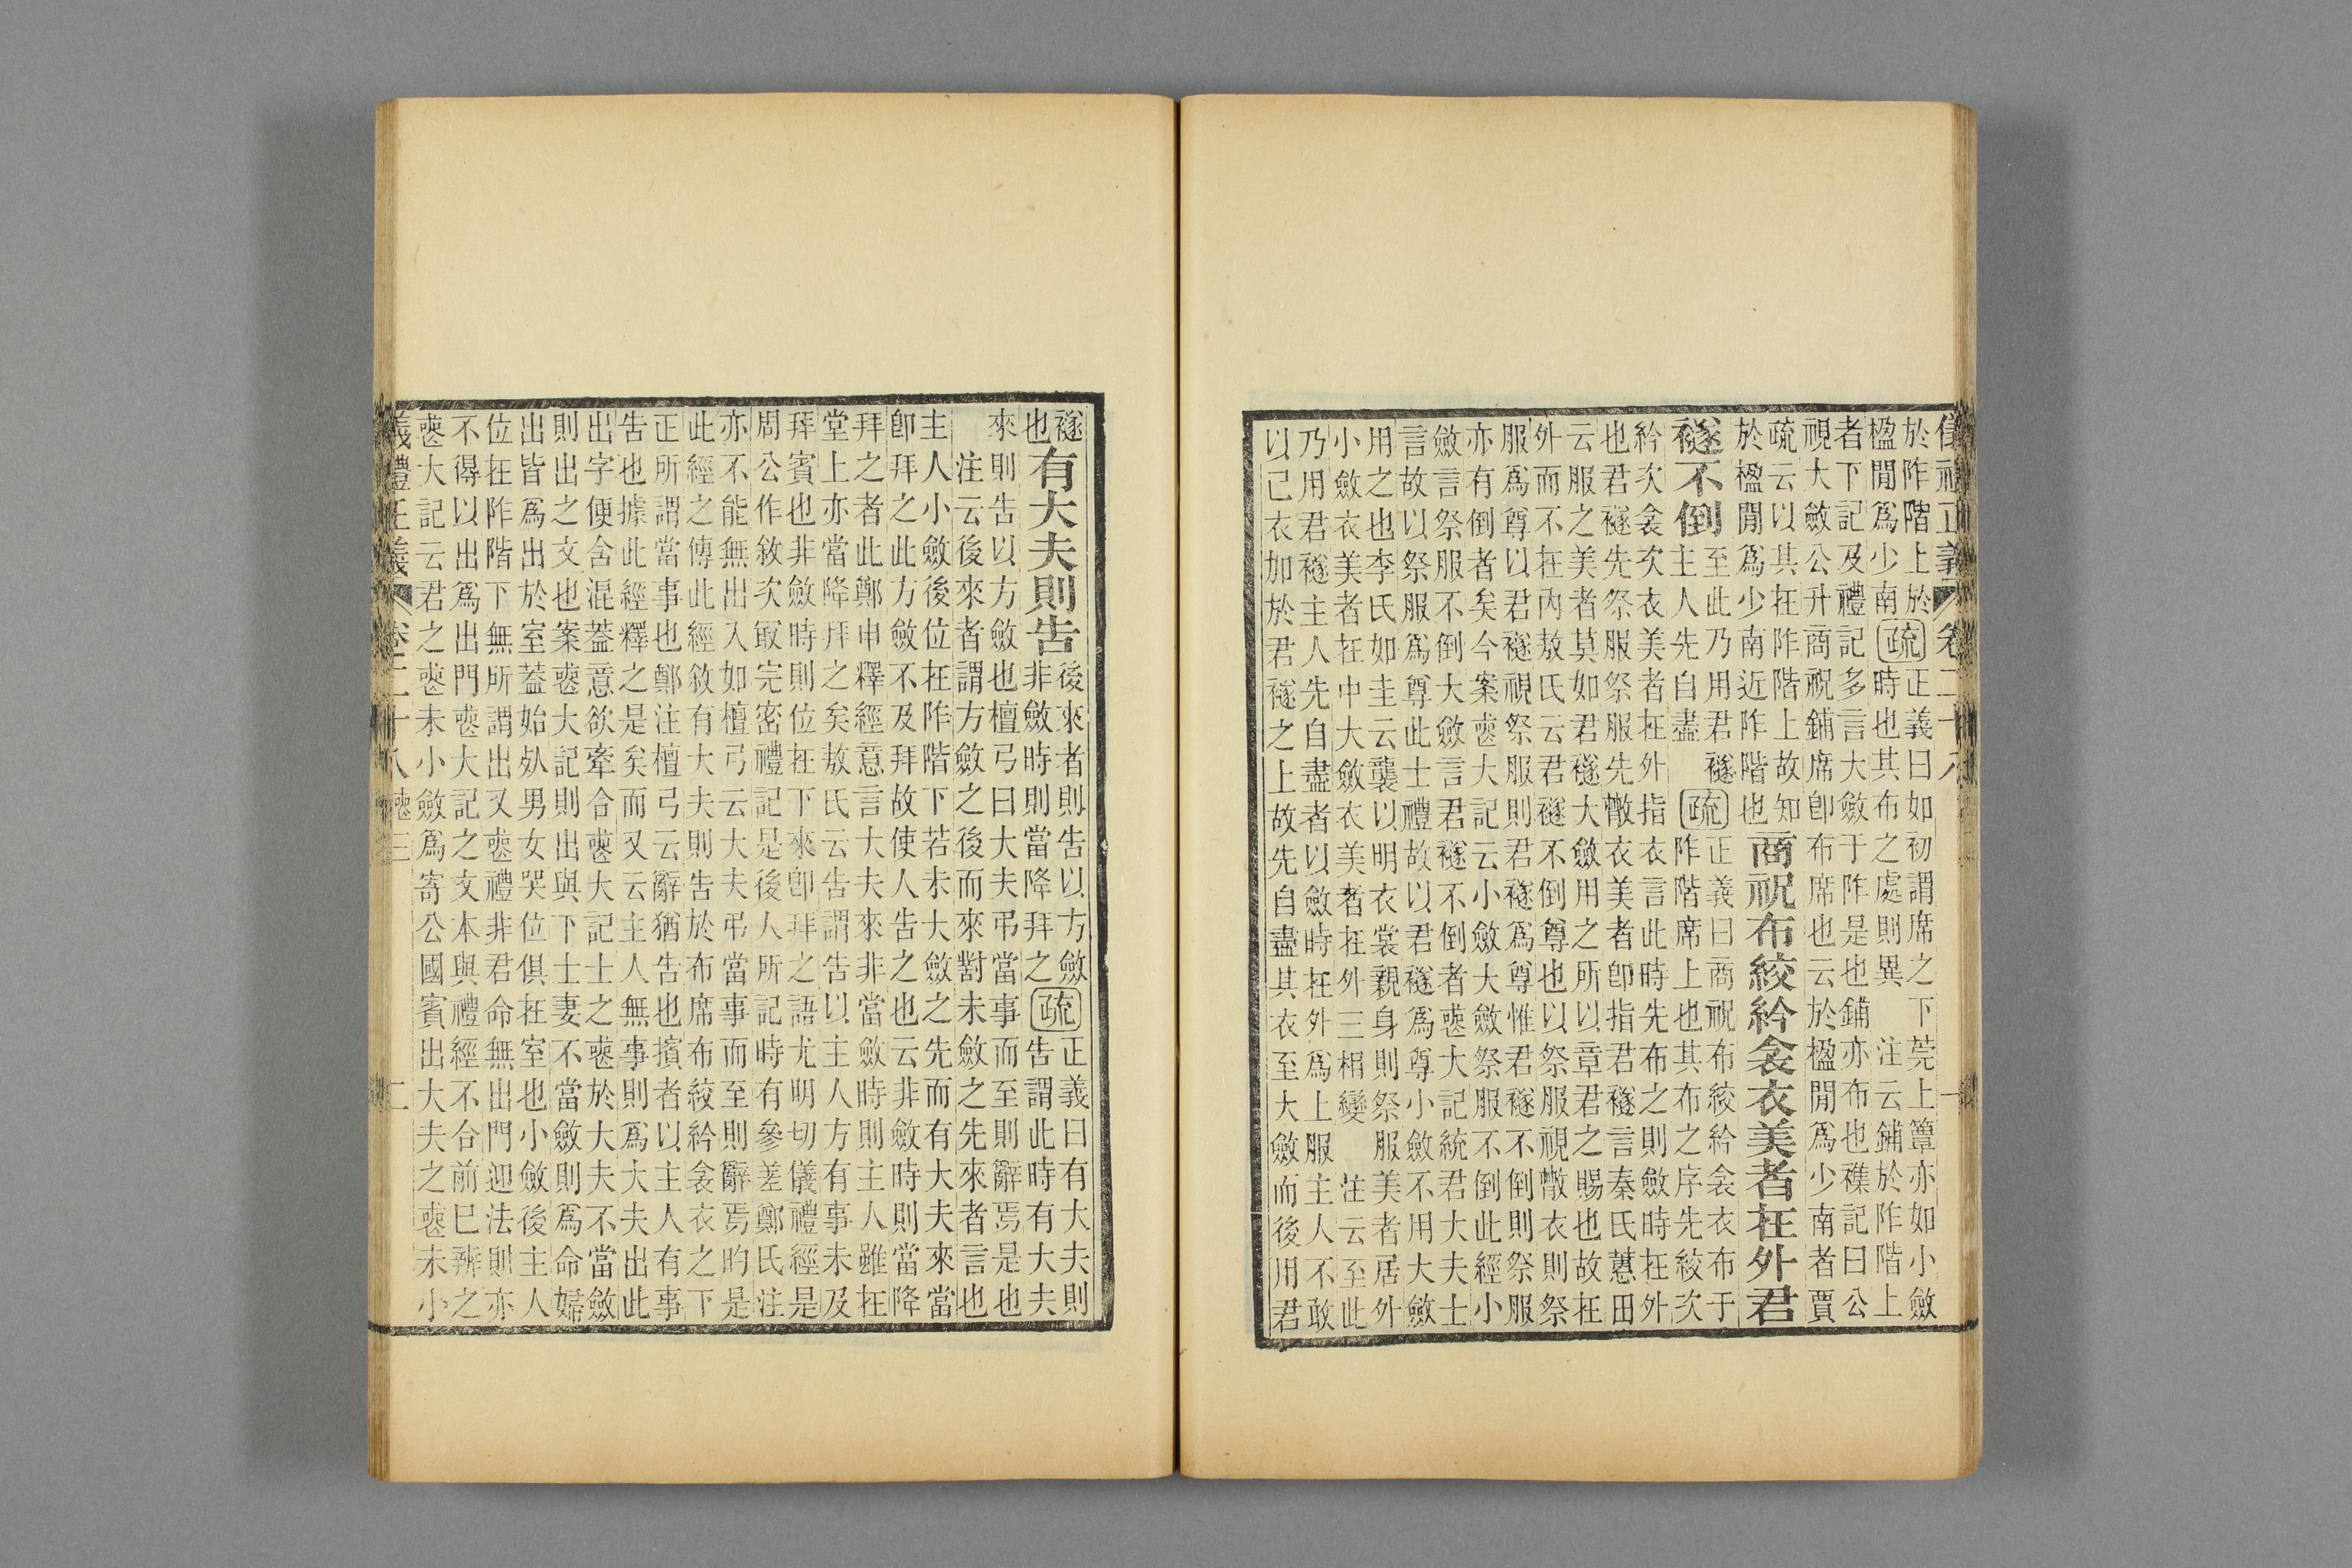 儀禮正義 卷二十八 一
於阼階上於
楹閒爲少南疏正義曰如初謂席之下莞上簟亦如小斂
時也其布之處則異 注云鋪於阼階上
者下記及禮記多言大斂于阼是也鋪亦布也穕記曰公
視大斂公升商祝鋪席卽布席也云於楹閒爲少南者賈
疏云以其在阼階上故知
於楹閒爲少南近阼階也商祝布絞紟衾衣美者在外君
襚不倒至此乃用君襚
主人先自盡 疏正義曰商祝布絞紟衾衣布于
阼階席上也其布之序先絞次
紟次衾次衣美者在外指衣言此時先布之則斂時在外
也君襚先祭服祭服先散衣美者卽指君襚言秦氏蕙田
云服之美者莫如君襚大斂用之所以章君之賜也故在
外而不在內敖氏云君襚不倒尊也以祭服視散衣則祭
服爲尊以君襚視祭服則君襚爲尊惟君襚不倒則祭服
亦有倒者矣今案喪大記云小斂大斂祭服不倒此經小
斂言祭服不倒大斂言君襚不倒者喪大記統君大夫士
言故以祭服爲尊此士禮故以君襚爲尊小斂不用大斂
用之也李氏如圭云襲以明衣裳親身則祭服美者居外
小斂衣美者在中大斂衣美者在外三相變 注云至此
乃用君襚主人先自盡者以斂時在外爲上服主人不敢
以己衣加於君襚之上故先自盡其衣至大斂而後用君
襚
也有大夫則告後來者則告以方斂
非斂時則當降拜之疏正義曰有大夫則
告謂此時有大夫
來則告以方斂也檀弓曰大夫弔當事而至則辭焉是也
注云後來者謂方斂之後而來對未斂之先來者言也
主人小斂後位在阼階下若未大斂之先而有大夫來當
卽拜之此方斂不及拜故使人告之也云非斂時則當降
拜之者此鄭申釋經意言大夫來非當斂時則主人雖在
堂上亦當降拜之矣敖氏云告謂告以主人方有事未及
拜賓也非斂時則位在下來卽拜之語尤明切儀禮經是
周公作敘次最完密禮記是後人所記時有參差鄭氏注
亦不能無出入如檀弓云大夫弔當事而至則辭焉的是
此經之傳此經敘有大夫則告於布席布絞紟衾衣之下
正所謂當事也鄭注檀弓云辭猶告也擯者以主人有事
告也據此經釋之是矣而又云主人無事則爲大夫出此
出字便舍混葢意欲牽合喪大記士之喪於大夫不當斂
則出之文也案喪大記則出與下士妻不當斂則爲命婦
出皆爲出於室葢始𣦸男女哭位俱在室也小斂後主人
位在阼階下無所謂出又喪禮非君命無出門迎法則亦
不得以出爲出門喪大記之文本與禮經不合前已辨之
喪大記云君之喪未小斂爲寄公國賓出大夫之喪未小
儀禮正義 卷二十八 喪三 二